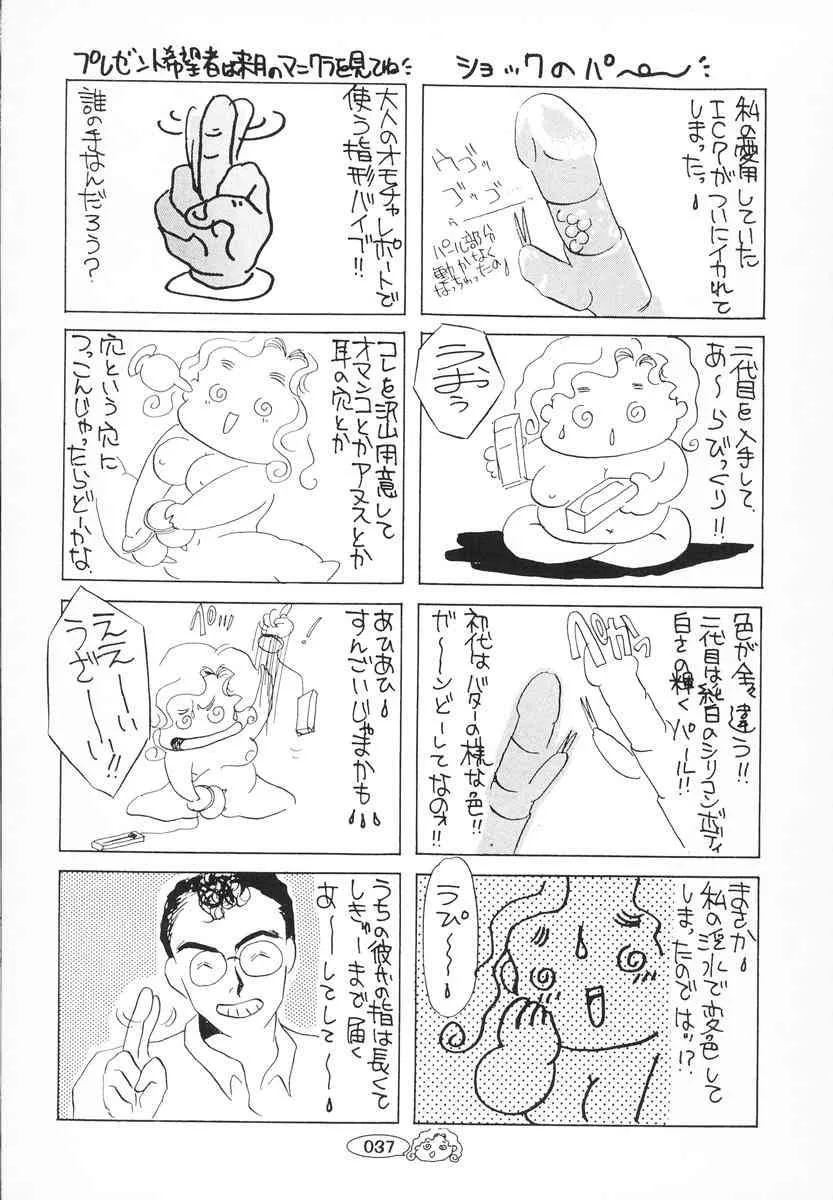 ショックのパ〜〜
私の愛用していた
ICPがついにイカれて
しまったっ
ウゴッ
ゴッゴ
パール部分
動かなく
なっちゃったの
二代目を入手して、
あ〜らびっくり!!
うおぅ
色が全々違う!!
二代目は純白のシリコンボディ
白さの輝くパール!!
ペかっ
初代はバターの様な色!!
が〜〜ンどーしてなのォ!!
まさか
私の淫水で変色して
しまったのでは!?
うぴ〜〜
プレゼント希望者は来月のマニクラを見てね
大人のオモチャレポートで
使う指形バイブ!!
誰の手なんだろう?
コレを沢山用意して
オマンコとかアヌスとか
耳の穴とか
穴という穴に
つっこんじゃったらどーかな
あひあひ
すんごいじゃまかも
ペ
ええーい
うざーーい!!
うちの彼カの指は長くて
しきゅーまで届く
あ〜〜してして〜
037